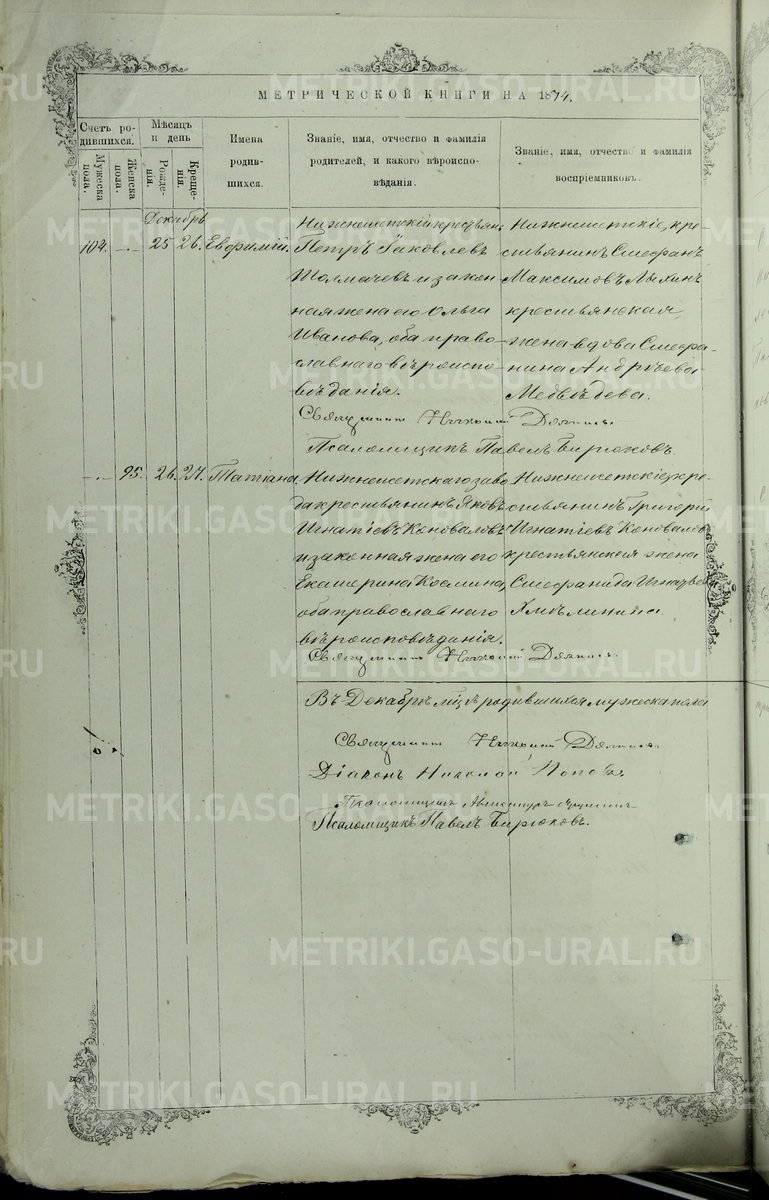 МЕТРИЧЕСКОЙ КНИГИ НА 1874.
Счетъ родившихся.
Мужеска пола.
Женска пола.
Мѣсяцъ и день
Рожденія.
Крещенія.
Имена родившихся.
Званіе, имя, отчество и фамилія
родителей, и какого вѣроиспо-
вѣданія.
Званіе, имя, отчество и фамилія
воспріемниковъ.
Декабрь
104. -.- 25 26. Евфимій.
Нижнеисетскій крестьян:
Петръ Яковлевъ
Толмачевъ и закон
ная жена его Ольга
Иванова, оба право-
славнаго вѣроиспо-
вѣданія.
Нижнеисетскіе, кре-
стьянинъ Стефанъ
Максимовъ Лыхинъ
крестьянская
жена вдова Стефа-
нида Андрѣева
Медвѣдева.
Священникъ
Псаломщикъ Павелъ Бирюковъ.
-.- 95. 26. 27. Татіана.
Нижнеисетскаго заво
да крестьянинъ Яковъ
Игнатіевъ Коноваловъ
и законная жена его
Екатерина Космина,
оба православнаго
вѣроисповѣданія.
Нижнеисетскіе, кре-
стьянинъ Григорій
Игнатіевъ Коноваловъ
крестьянская жена
Стефанида Игнатьева
Священникъ
Въ Декабрѣ мѣсяцѣ родившихся мужеска пола
Священникъ
Діаконъ Николай Поповъ
Псаломщикъ
Псаломщикъ Павелъ Бирюковъ.
METRIKI.GASO-URAL.RU